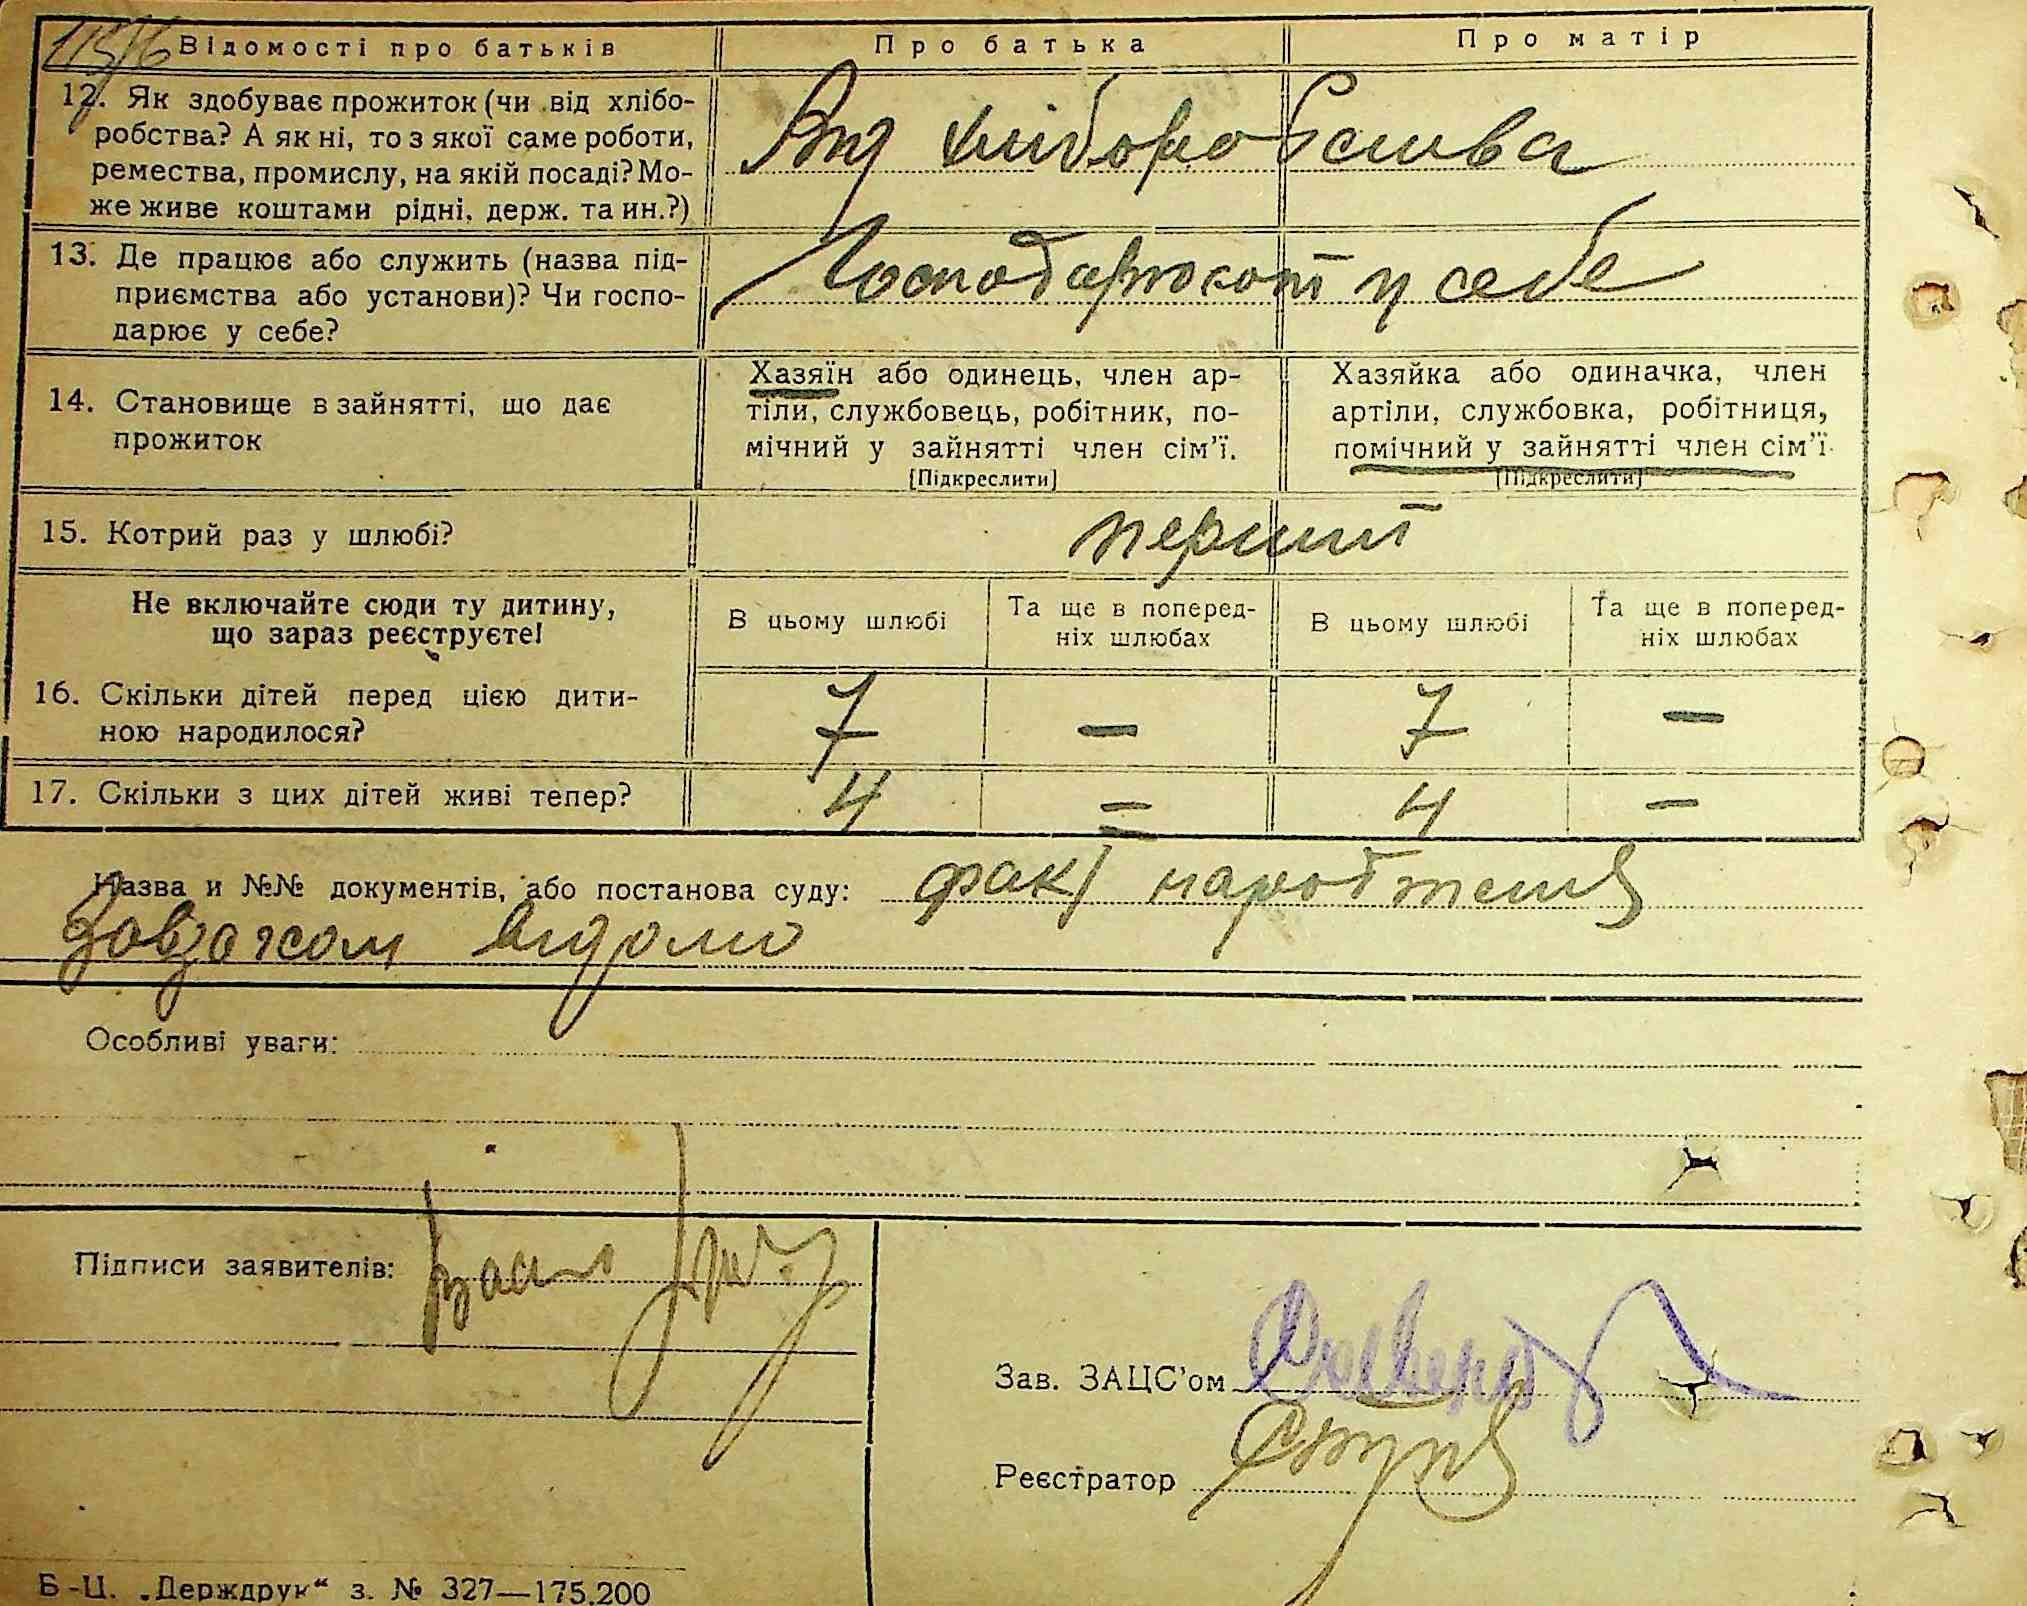 115/6 Відомості про батьків
Про батька
Про матір
12. Як здобуває прожиток (чи від хлібо-
робства? А як ні, то з якої саме роботи,
ремества, промислу, на якій посаді? Мо-
же живе коштами рідні, держ. та ин.?)
Від хліборобства
13. Де працює або служить (назва під-
приємства або установи)? Чи госпо-
дарює у себе?
Господарюють у себе
14. Становище в зайнятті, що дає
прожиток
Хазяїн або одинець, член ар-
тіли, службовець, робітник, по-
мічний у зайнятті член сім'ї.
[Підкреслити]
Хазяйка або одиначка, член
артіли, службовка, робітниця,
помічний у зайнятті член сім'ї.
[Підкреслити]
15. Котрий раз у шлюбі?
перший
Не включайте сюди ту дитину,
що зараз реєструєте!
В цьому шлюбі
Та ще в поперед-
ніх шлюбах
В цьому шлюбі
Та ще в поперед-
ніх шлюбах
16. Скільки дітей перед цією дити-
ною народилося?
7 – 7 –
17. Скільки з цих дітей живі тепер?
4 – 4 –
Назва и №№ документів, або постанова суду: факт народження
Завзагсом відомо
Особливі уваги:
Підписи заявителів:
Зав. ЗАЦС'ом
Реєстратор
Б-Ц. „Держдрук“ з. № 327—175.200